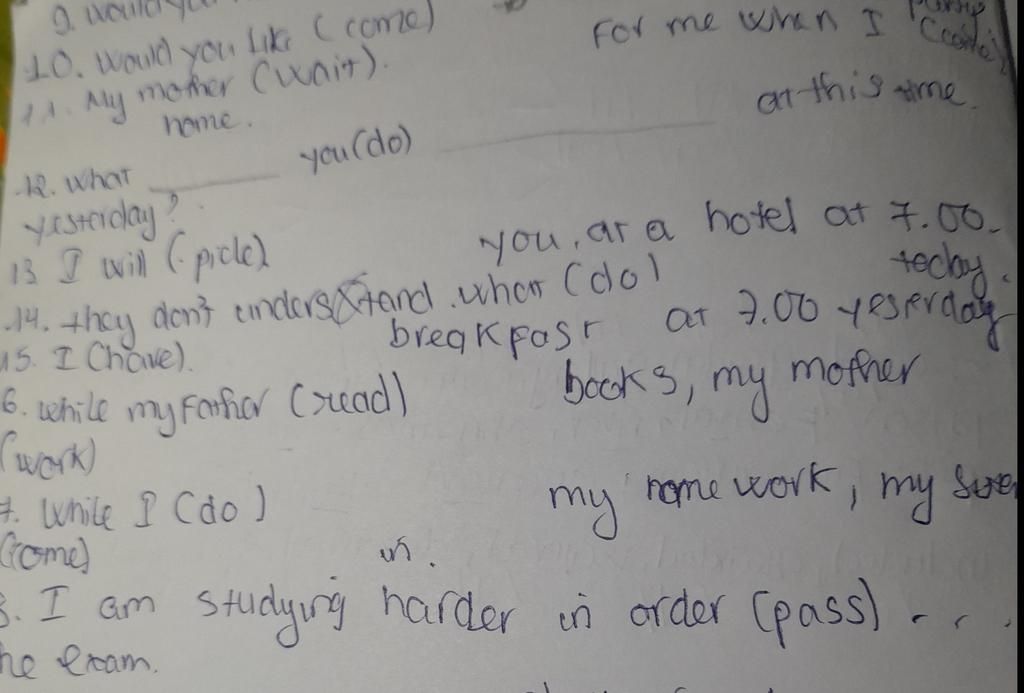 9. would you
party
10. Would you like (come)
11. My mother (wait). For me when I (come)
home.
12. What ______ you (do) ______ at this time
yesterday?
13 I will (pick) you. at a hotel at 7.00.
14. they don't understand. what (do) today.
15. I (have). breakfast at 7.00 yesterday
6. While my Father (read) books, my mother
(work)
7. While I (do) my homework, my
(come) in.
8. I am studying harder in order (pass) ....
he exam.